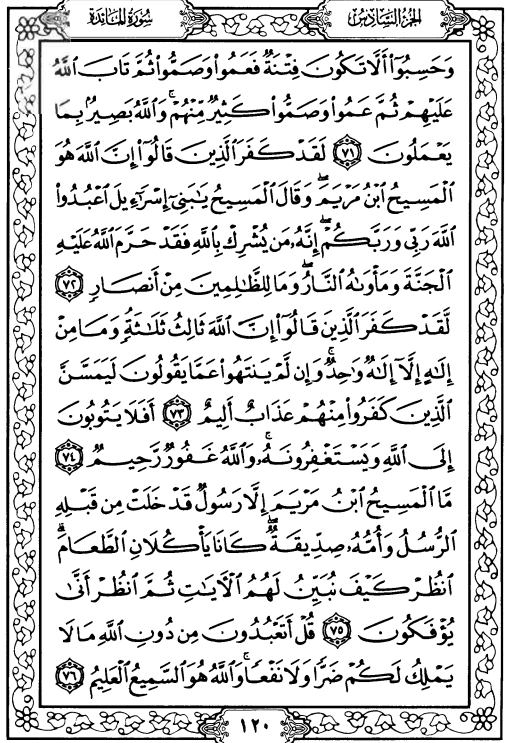 سُورَةُ المَائِدَةِ
الجُزْءُ السَّادِسُ
وَحَسِبُوٓا۟ أَلَّا تَكُونَ فِتْنَةٌ فَعَمُوا۟ وَصَمُّوا۟ ثُمَّ تَابَ ٱللَّهُ
عَلَيْهِمْ ثُمَّ عَمُوا۟ وَصَمُّوا۟ كَثِيرٌ مِّنْهُمْ ۚ وَٱللَّهُ بَصِيرٌۢ بِمَا
يَعْمَلُونَ ٧١ لَقَدْ كَفَرَ ٱلَّذِينَ قَالُوٓا۟ إِنَّ ٱللَّهَ هُوَ
ٱلْمَسِيحُ ٱبْنُ مَرْيَمَ ۖ وَقَالَ ٱلْمَسِيحُ يَٰبَنِىٓ إِسْرَٰٓءِيلَ ٱعْبُدُوا۟
ٱللَّهَ رَبِّى وَرَبَّكُمْ ۖ إِنَّهُۥ مَن يُشْرِكْ بِٱللَّهِ فَقَدْ حَرَّمَ ٱللَّهُ عَلَيْهِ
ٱلْجَنَّةَ وَمَأْوَىٰهُ ٱلنَّارُ ۖ وَمَا لِلظَّٰلِمِينَ مِنْ أَنصَارٍ ٧٢
لَّقَدْ كَفَرَ ٱلَّذِينَ قَالُوٓا۟ إِنَّ ٱللَّهَ ثَالِثُ ثَلَٰثَةٍ ۘ وَمَا مِنْ
إِلَٰهٍ إِلَّآ إِلَٰهٌ وَٰحِدٌ ۚ وَإِن لَّمْ يَنتَهُوا۟ عَمَّا يَقُولُونَ لَيَمَسَّنَّ
ٱلَّذِينَ كَفَرُوا۟ مِنْهُمْ عَذَابٌ أَلِيمٌ ٧٣ أَفَلَا يَتُوبُونَ
إِلَى ٱللَّهِ وَيَسْتَغْفِرُونَهُۥ ۚ وَٱللَّهُ غَفُورٌ رَّحِيمٌ ٧٤
مَّا ٱلْمَسِيحُ ٱبْنُ مَرْيَمَ إِلَّا رَسُولٌ قَدْ خَلَتْ مِن قَبْلِهِ
ٱلرُّسُلُ وَأُمُّهُۥ صِدِّيقَةٌ ۖ كَانَا يَأْكُلَانِ ٱلطَّعَامَ ۗ
ٱنظُرْ كَيْفَ نُبَيِّنُ لَهُمُ ٱلْءَايَٰتِ ثُمَّ ٱنظُرْ أَنَّىٰ
يُؤْفَكُونَ ٧٥ قُلْ أَتَعْبُدُونَ مِن دُونِ ٱللَّهِ مَا لَا
يَمْلِكُ لَكُمْ ضَرًّا وَلَا نَفْعًا ۚ وَٱللَّهُ هُوَ ٱلسَّمِيعُ ٱلْعَلِيمُ ٧٦
١٢٠